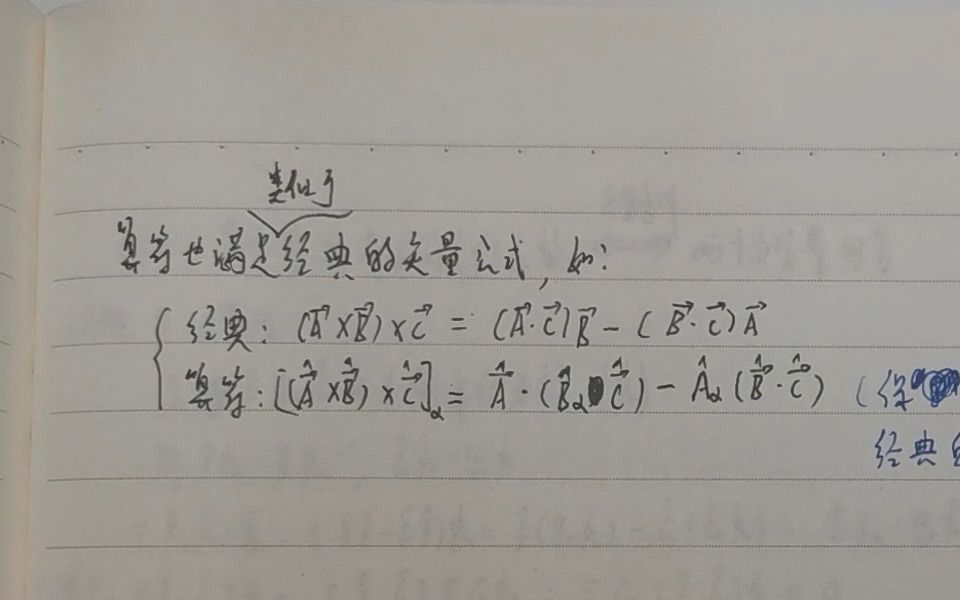 类似于
算符也满足经典的矢量公式,如:
经典: (A⃗×B⃗)×C⃗ = (A⃗·C⃗)B⃗-(B⃗·C⃗)A⃗
算符: [(A⃗̂×B⃗̂)×C⃗̂]α = A⃗̂·(B̂αC⃗̂)-Âα(B⃗̂·C⃗̂) (保
经典